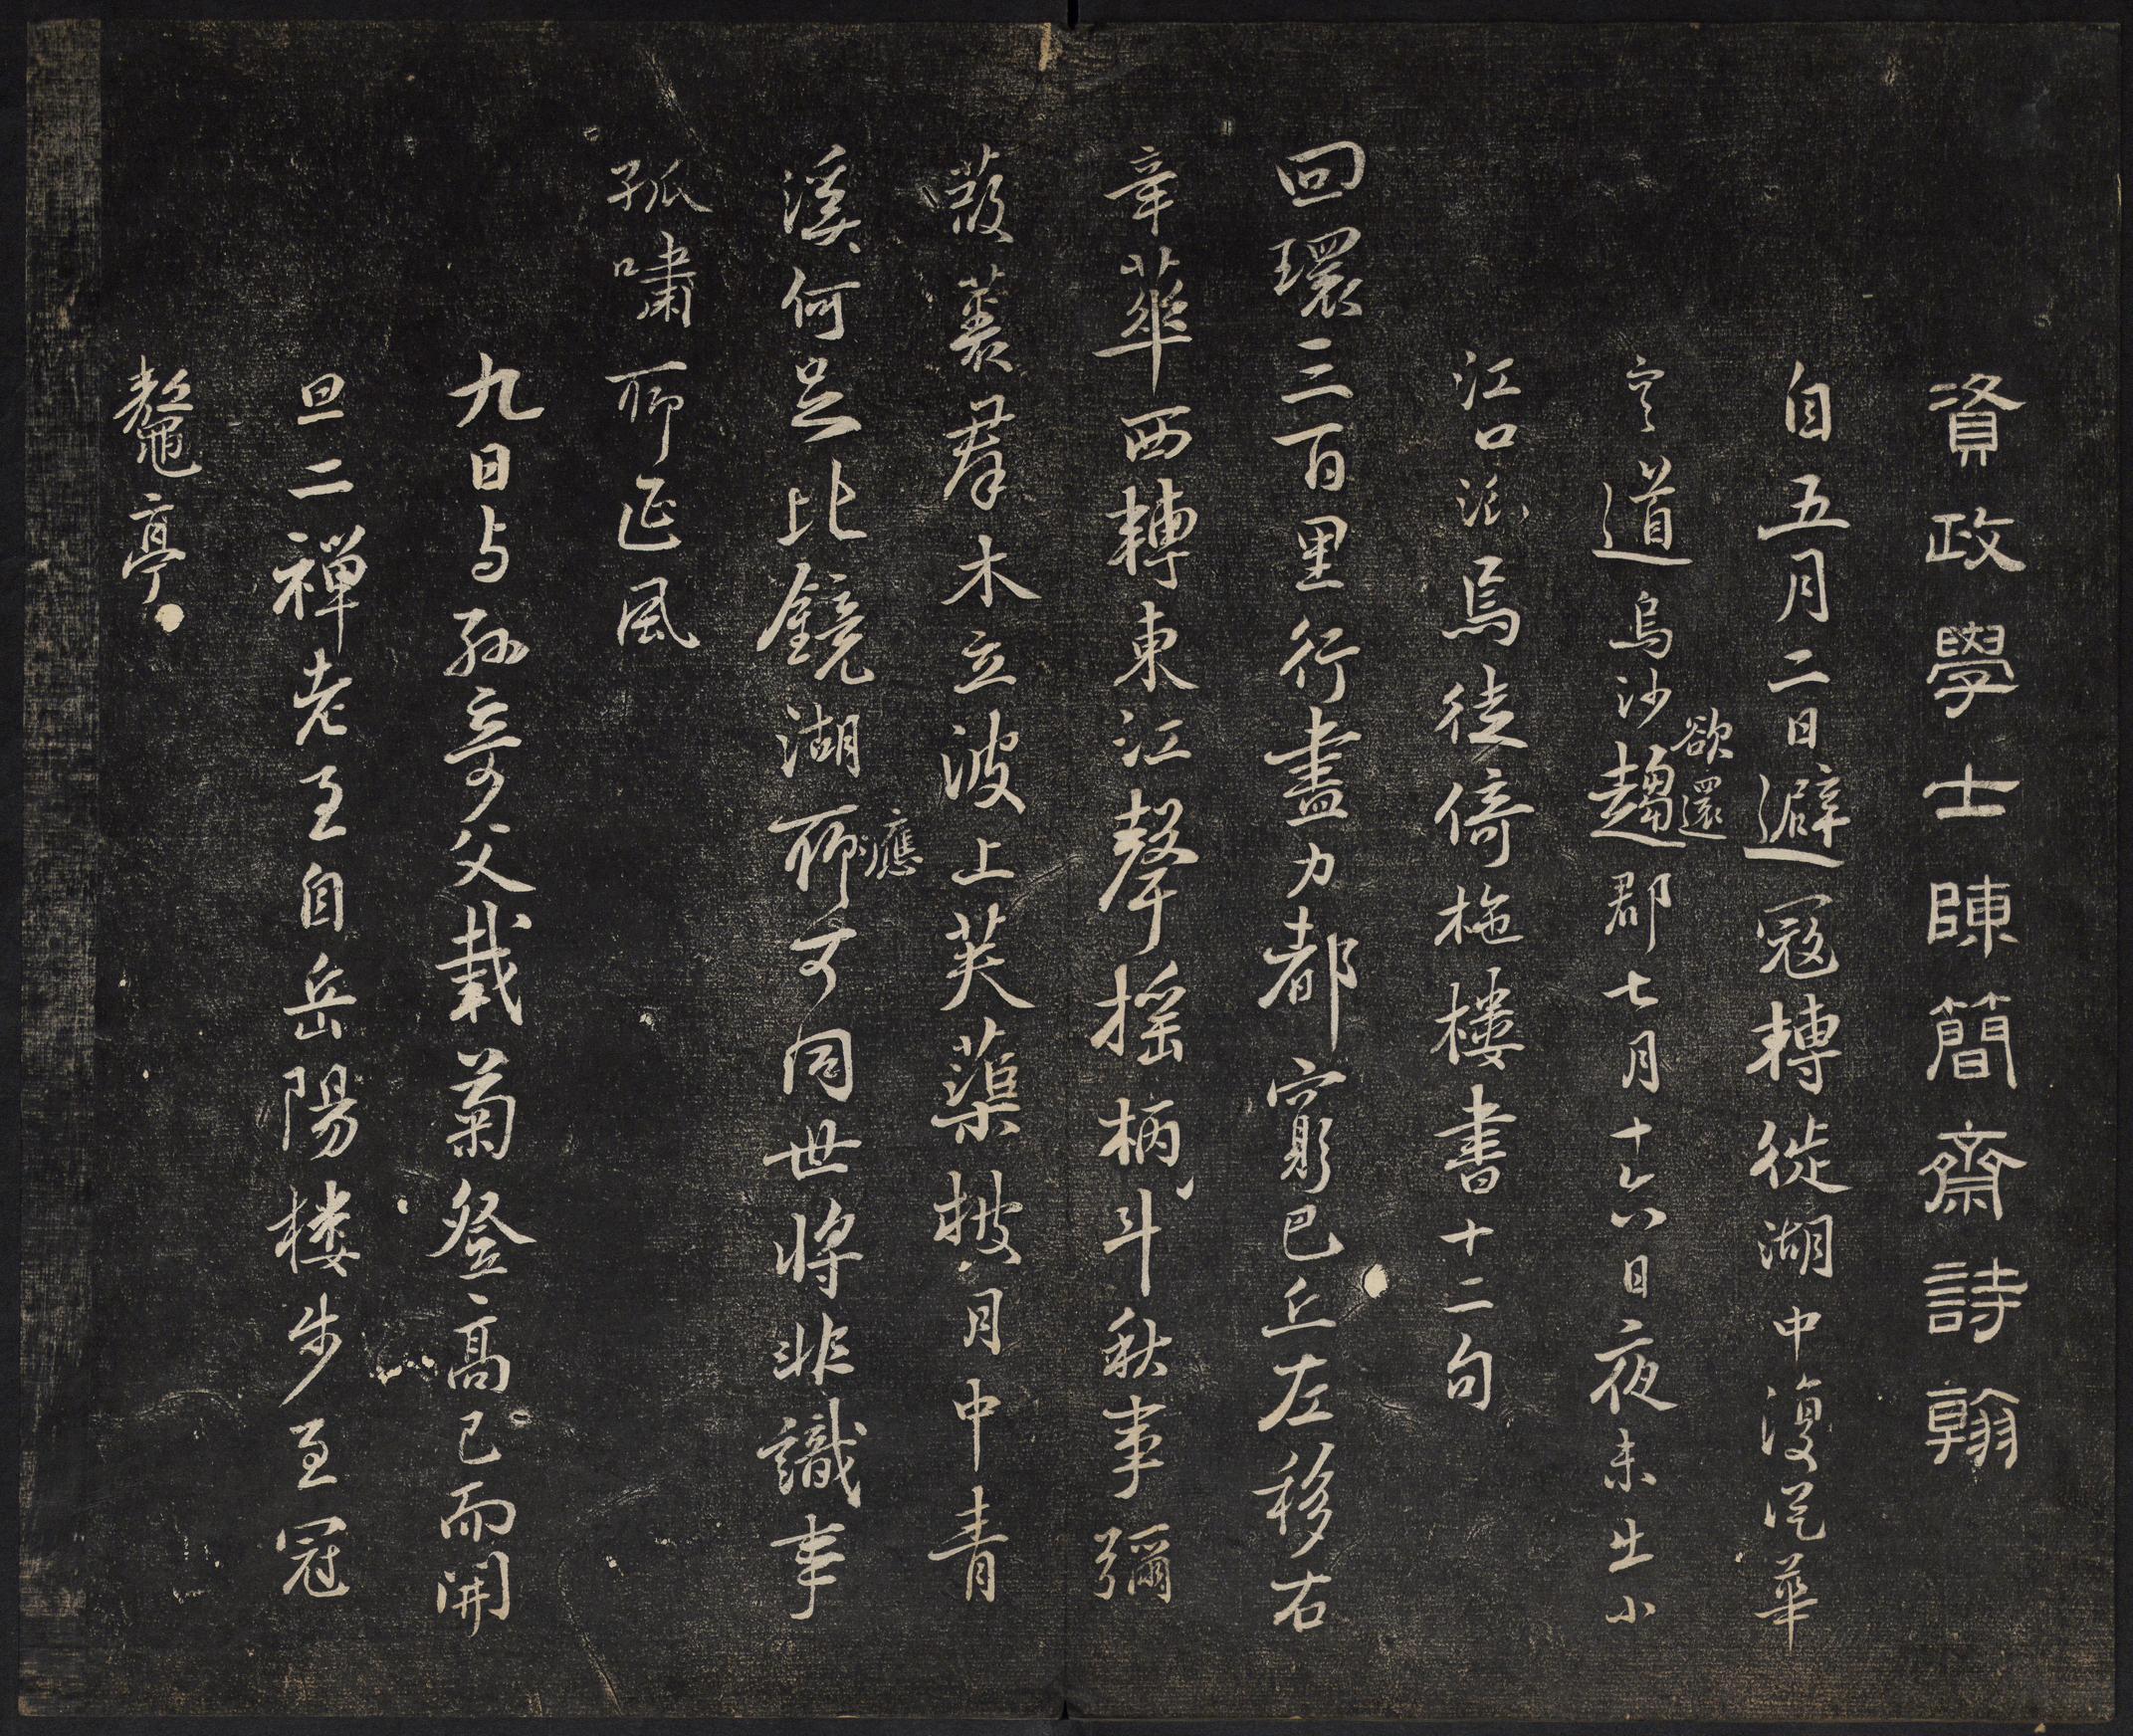 資政學士陳簡齋詩翰
自五月二日避寇轉徙湖中復從華
容道烏沙欲還趨郡七月十六日夜未出小
江口泊焉徒倚柂樓書十二句
回環三百里行盡力都窮巴丘左移右
章華西轉東江聲搖柄斗秋事彌
葭菼群木立波上芙蕖披月中青
溪何足比鏡湖聊應可同世將非識事
孤嘯聊延風
九日与孫竒父載菊登高已而開
旦二禪老至自岳陽楼步至冠
鼇亭